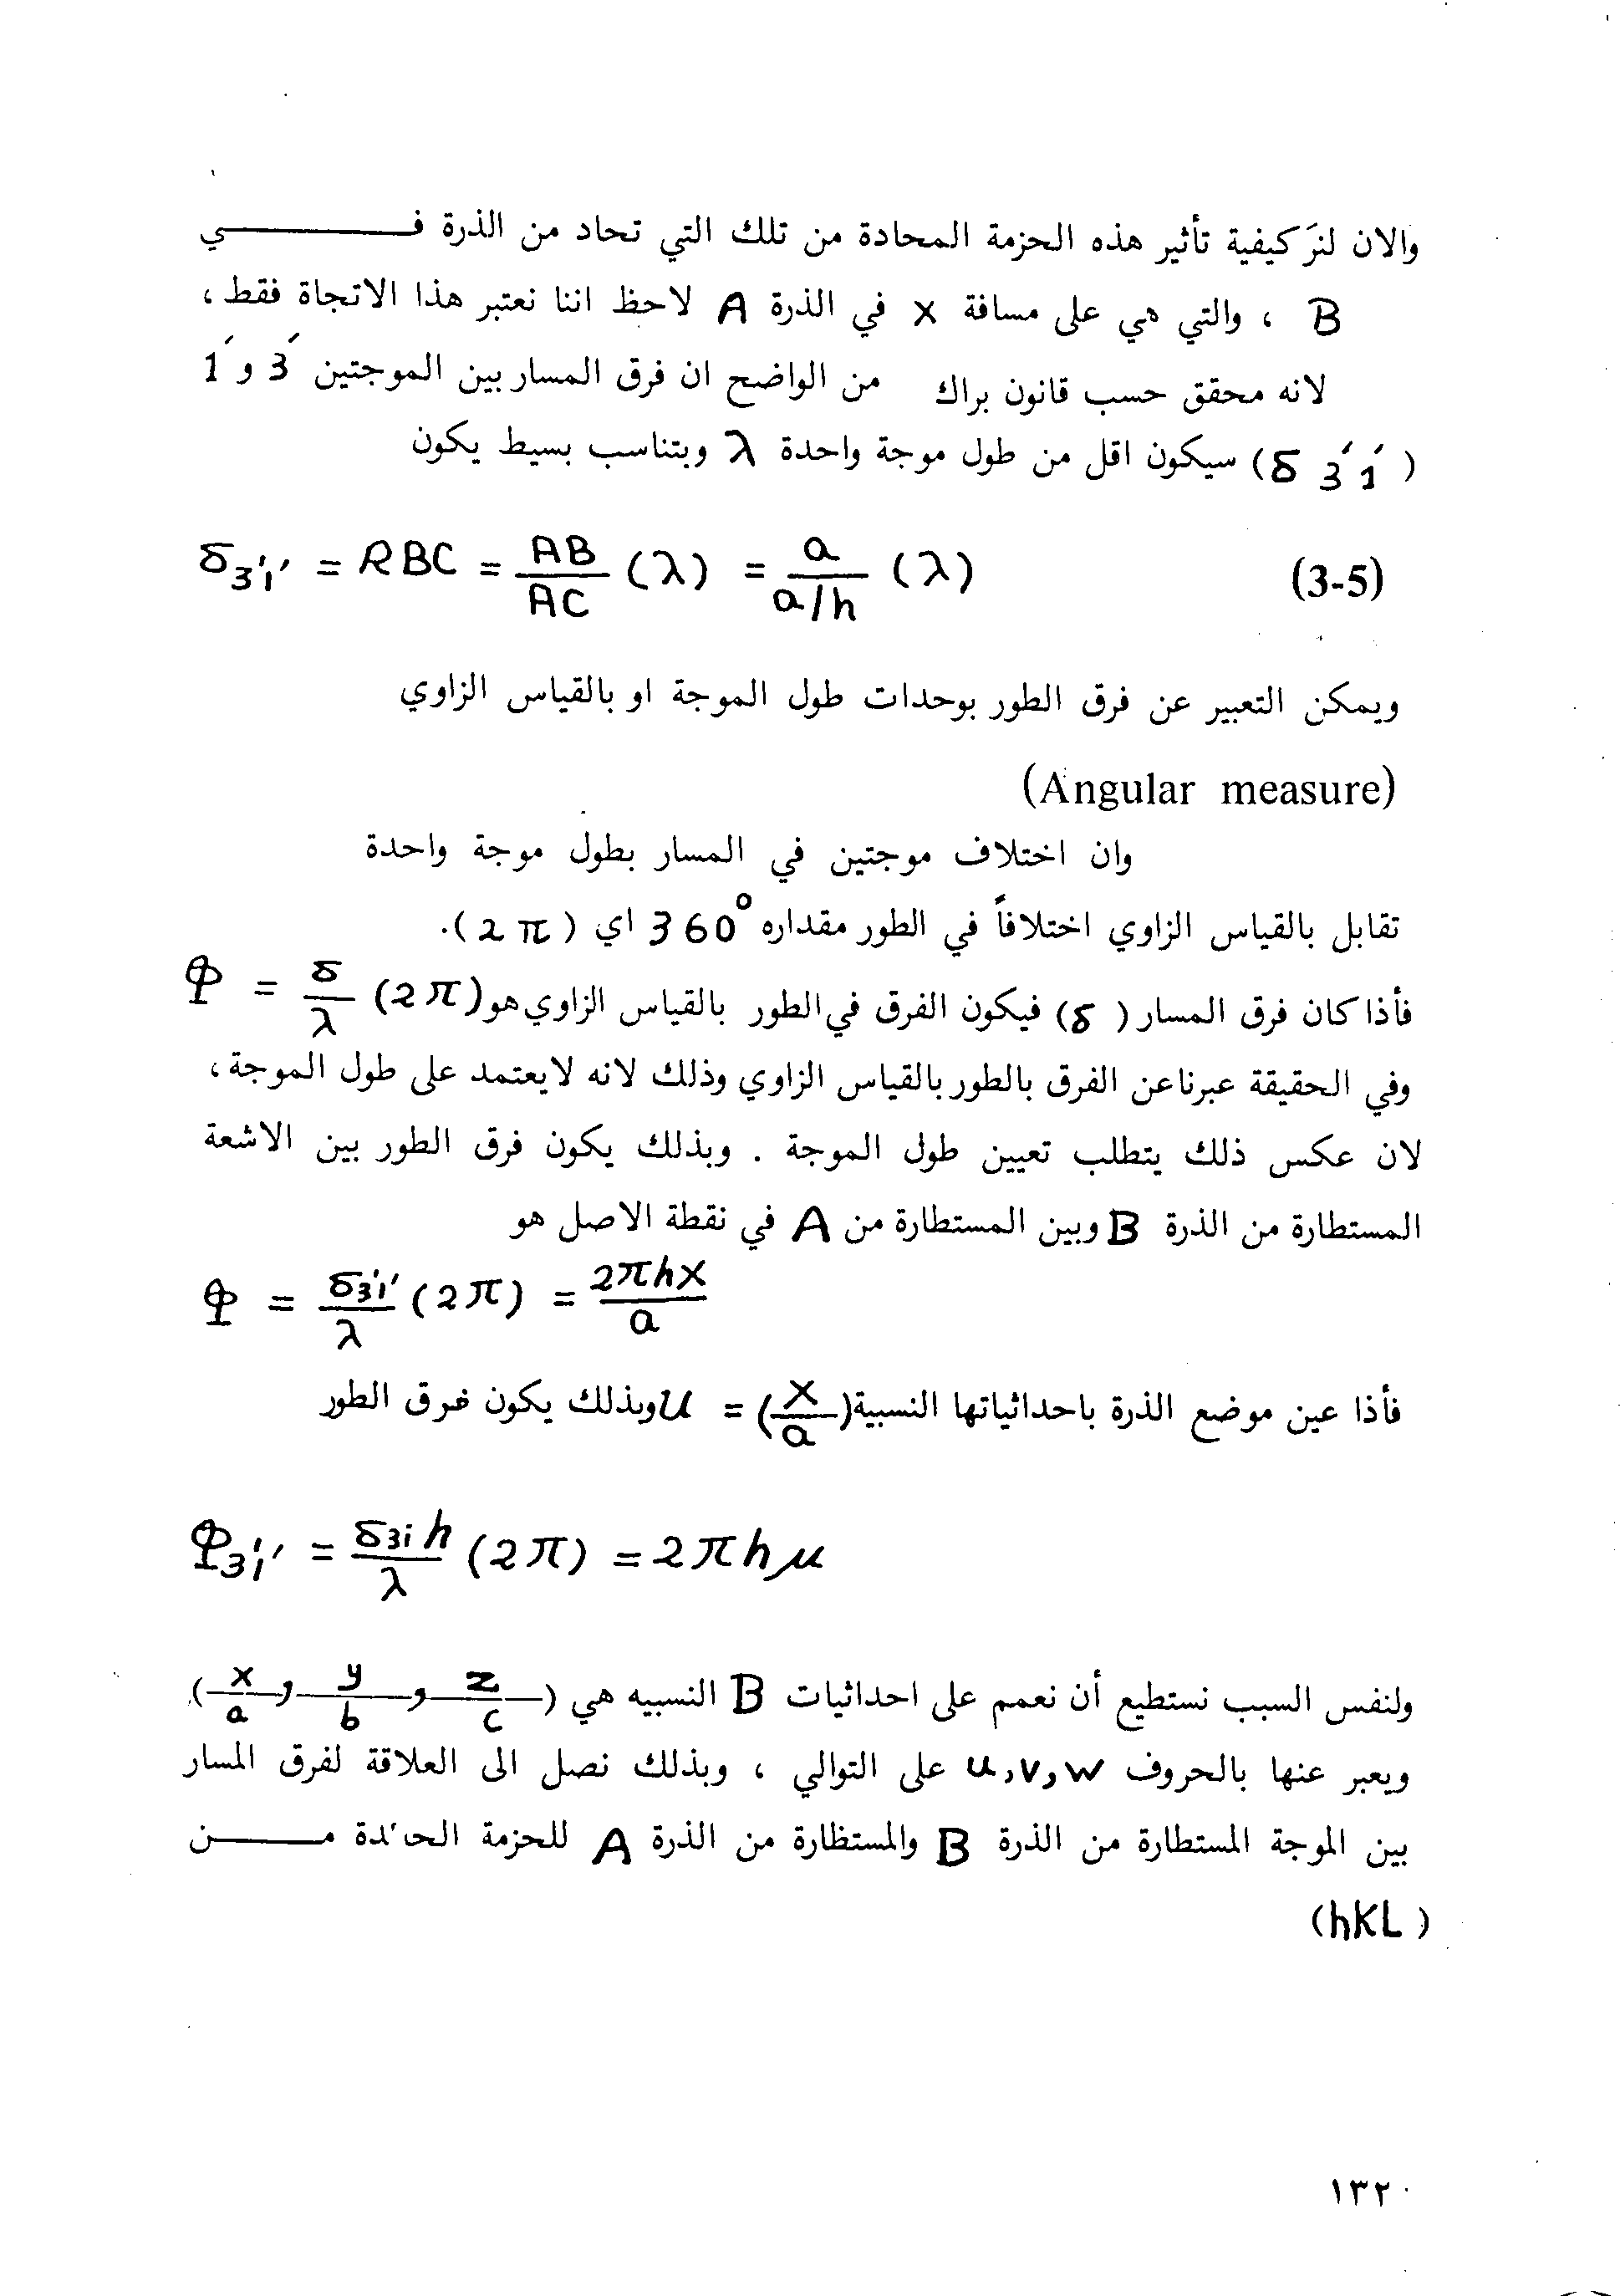 والان لنرَ كيفية تأثير هذه الحزمة المحادة من تلك التي تحاد من الذرة فـــــي
B ، والتي هي على مسافة x في الذرة A لاحظ اننا نعتبر هذا الاتجاة فقط ،
لانه محقق حسب قانون براك من الواضح ان فرق المسار بين الموجتين 3́ و 1́
(δ 3́ 1́) سيكون اقل من طول موجة واحدة λ وبتناسب بسيط يكون
δ3′1′ = RBC = AB/AC (λ) = a/(a/h) (λ) (3-5)
ويمكن التعبير عن فرق الطور بوحدات طول الموجة او بالقياس الزاوي
(Angular measure)
وان اختلاف موجتين في المسار بطول موجة واحدة
تقابل بالقياس الزاوي اختلافاً في الطور مقداره 360° اي (2π).
فأذا كان فرق المسار (δ) فيكون الفرق في الطور بالقياس الزاوي هو Φ = δ/λ (2π)
وفي الحقيقة عبرنا عن الفرق بالطور بالقياس الزاوي وذلك لانه لا يعتمد على طول الموجة ،
لان عكس ذلك يتطلب تعيين طول الموجة . وبذلك يكون فرق الطور بين الاشعة
المستطارة من الذرة B وبين المستطارة من A في نقطة الاصل هو
Φ = δ3′1′/λ (2π) = 2πhx/a
فأذا عين موضع الذرة باحداثياتها النسبية (x/a) = u وبذلك يكون فرق الطور
Φ3′1′ = δ3i h/λ (2π) = 2πhμ
ولنفس السبب نستطيع أن نعمم على احداثيات B النسبيه هي (x/a و y/b و z/c).
ويعبر عنها بالحروف u,v,w على التوالي ، وبذلك نصل الى العلاقة لفرق المسار
بين الموجة المستطارة من الذرة B والمستظارة من الذرة A للحزمة الحائدة مـــــن
(hKL)
١٣٢